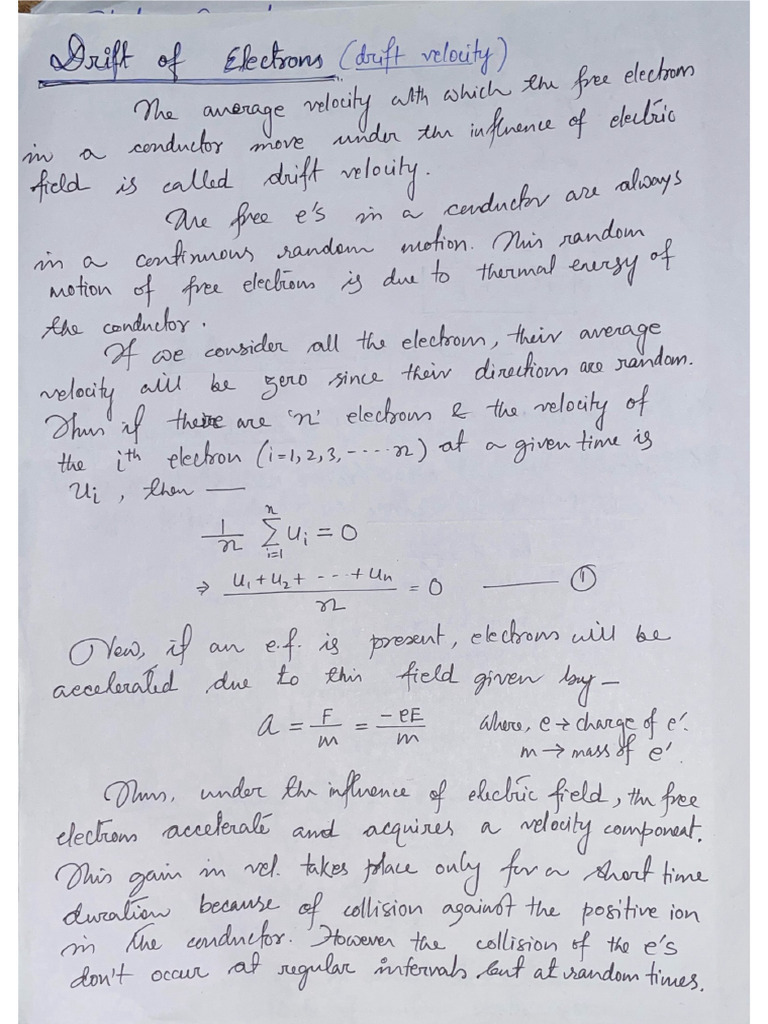 Drift of Electrons (drift velocity)
The average velocity with which the free electrons
in a conductor move under the influence of electric
field is called drift velocity.
The free e's in a conductor are always
in a continuous random motion. This random
motion of free electrons is due to thermal energy of
the conductor.
If we consider all the electrons, their average
velocity will be zero since their directions are random.
Thus if there are 'n' electrons & the velocity of
the ith electron (i=1,2,3,----n) at a given time is
Ui, then —
1/n Σ(i=1 to n) Ui = 0
⇒ (U1+U2+ --- +Un)/n = 0 —— ①
Now, if an e.f. is present, electrons will be
accelerated due to this field given by —
a = F/m = -eE/m where, e → charge of e'.
m → mass of e'.
Thus, under the influence of electric field, the free
electrons accelerate and acquires a velocity component.
This gain in vel. takes place only for a short time
duration because of collision against the positive ion
in the conductor. However the collision of the e's
don't occur at regular intervals but at random times.